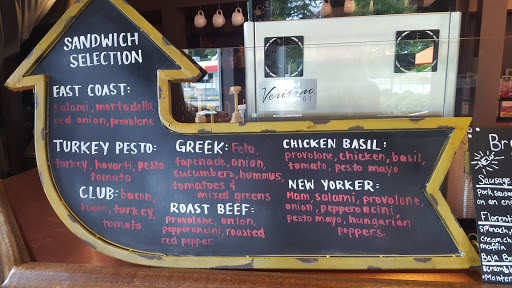 SANDWICH
SELECTION
EAST COAST:
salami, mortadella,
red onion, provolone
TURKEY PESTO:
turkey, havarti, pesto
tomato
CLUB: bacon,
Ham, turkey,
tomato.
GREEK: Feta,
tapenade, onion,
cucumbers, hummus,
tomatoes &
mixed greens
ROAST BEEF:
provolone, onion,
pepperoncini, roasted
red pepper
CHICKEN BASIL:
provolone, chicken, basil,
tomato, pesto mayo
NEW YORKER:
Ham, salami, provolone,
onion, pepperoncini,
pesto mayo, hungarian
peppers.
Verismo
Br
NEW
Sausage
pork sausa
on an en
Florenti
spinach,
cream ch
muffin
Baja B
scrambl
Monter